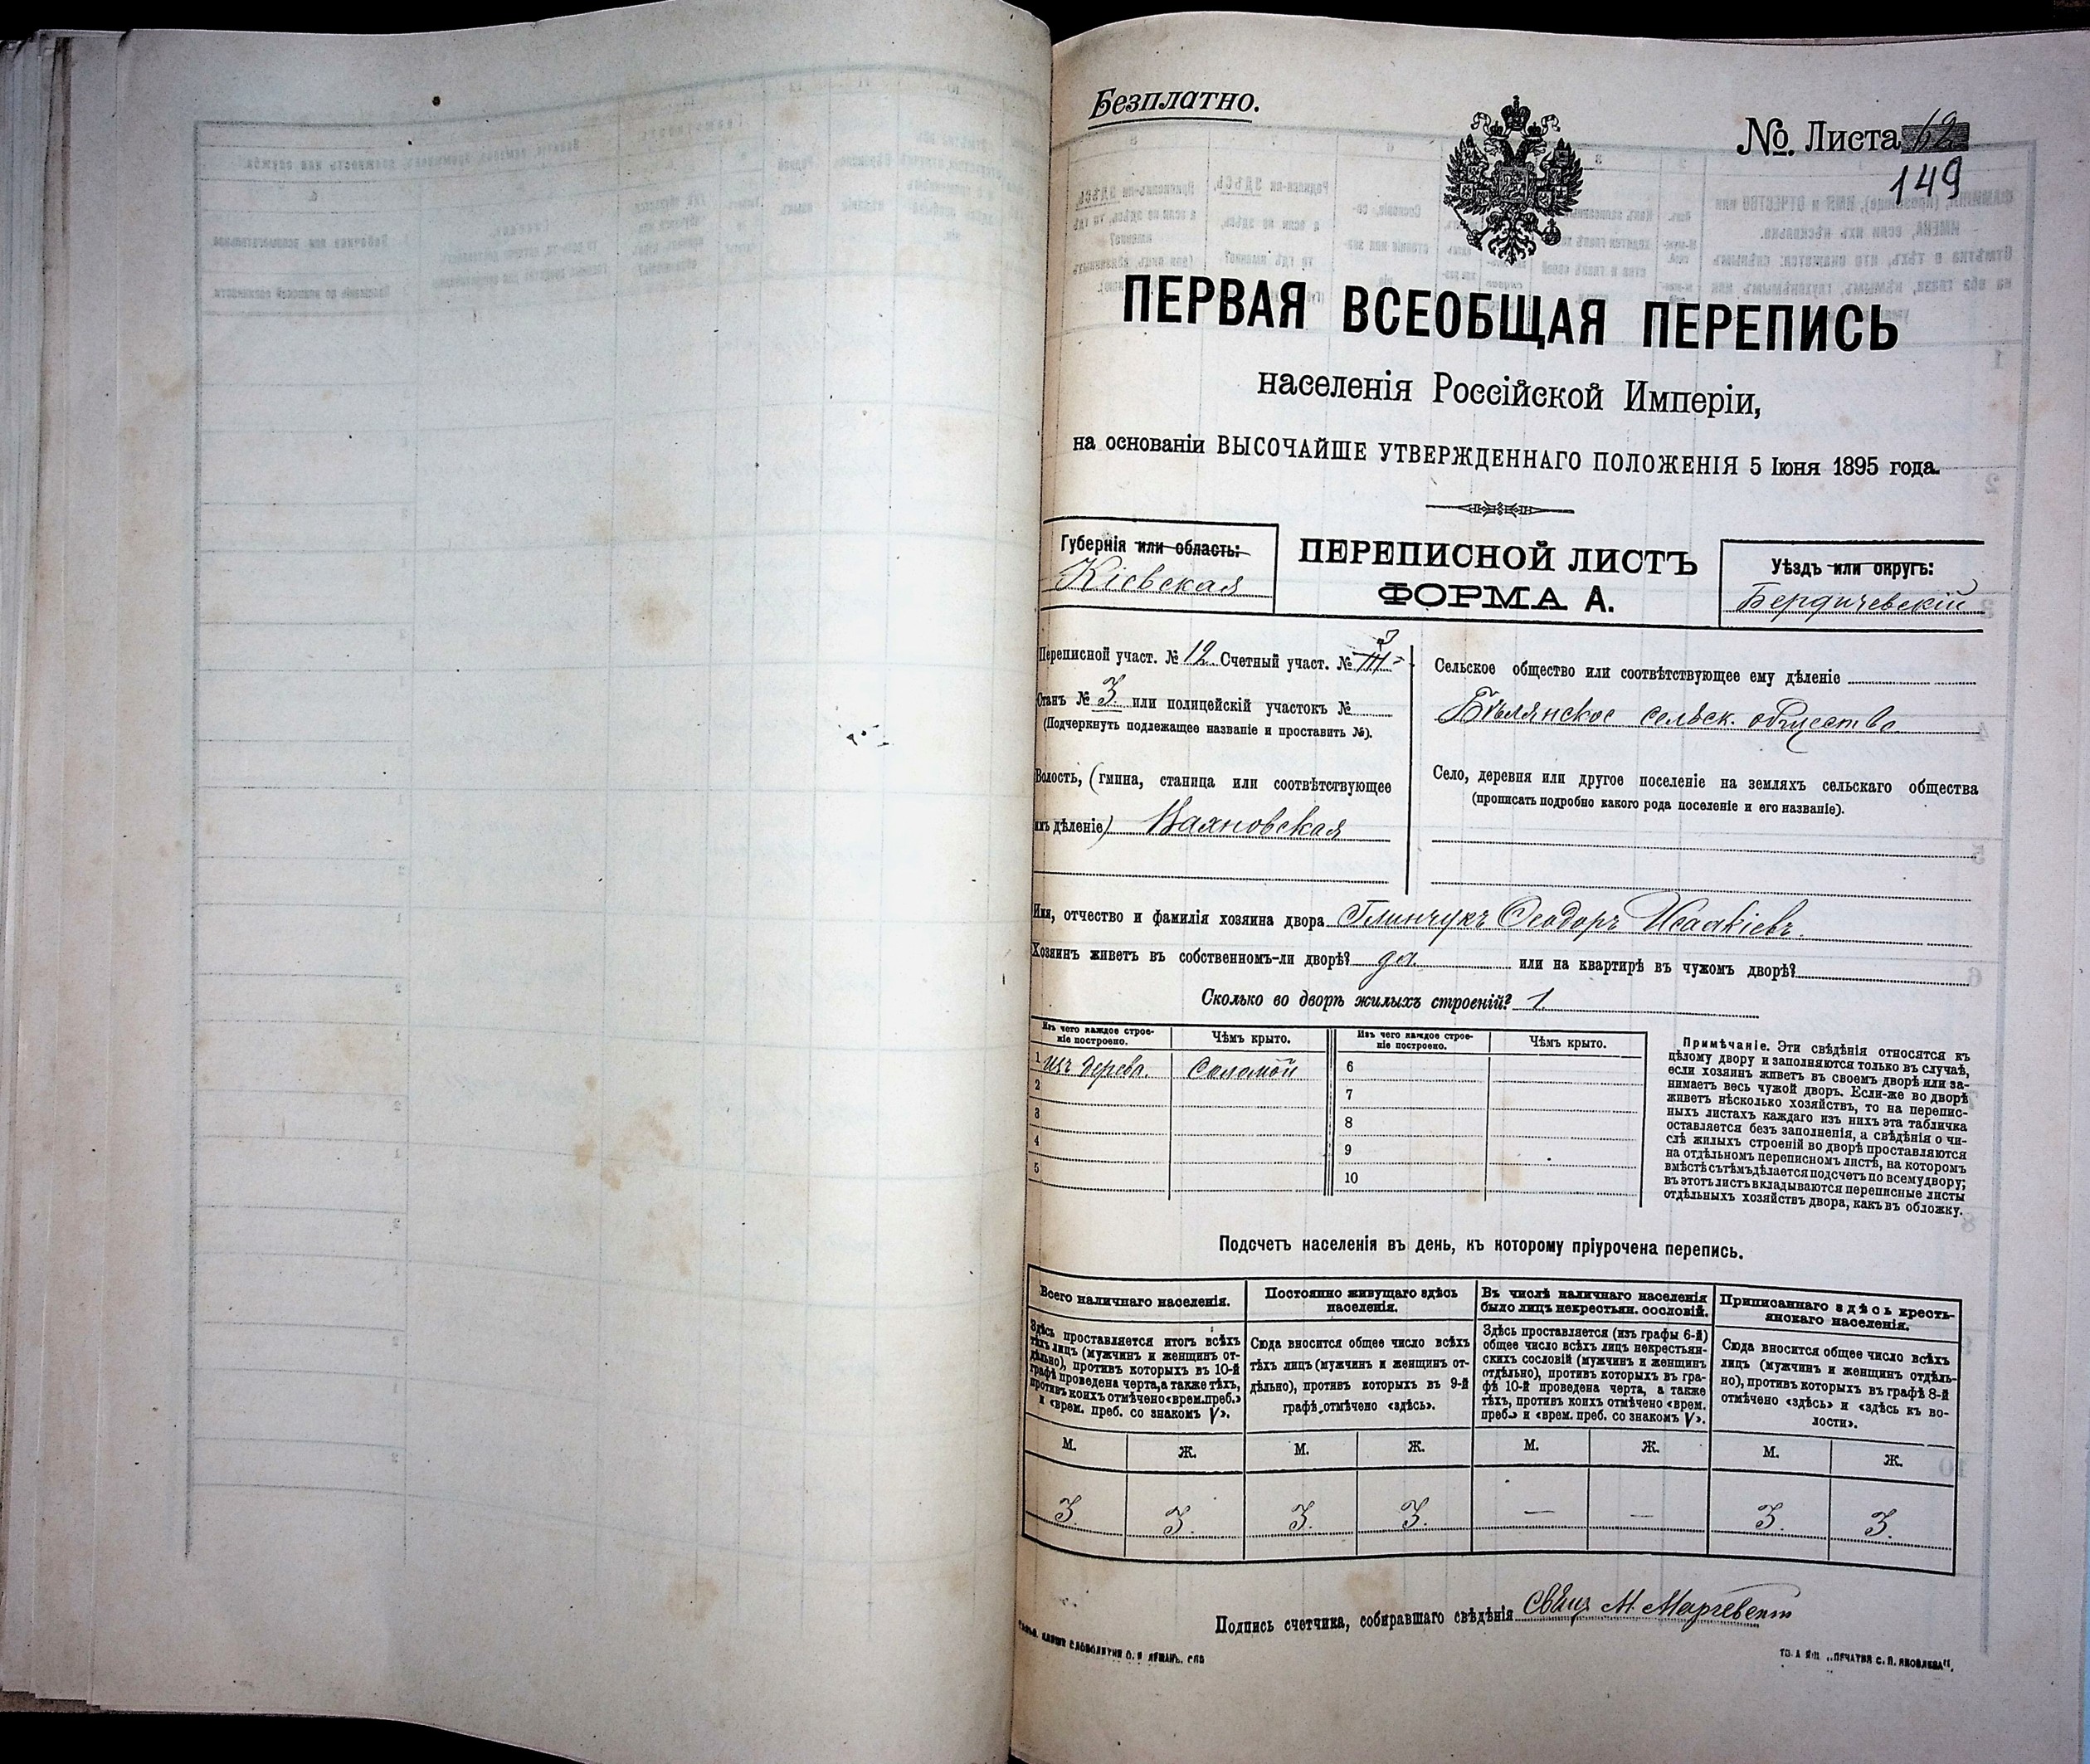 Безплатно.
№ Листа 62
149
ПЕРВАЯ ВСЕОБЩАЯ ПЕРЕПИСЬ
населенія Россійской Имперіи,
на основаніи ВЫСОЧАЙШЕ УТВЕРЖДЕННАГО ПОЛОЖЕНІЯ 5 Іюня 1895 года.
Губернія или область:
Кіевская
ПЕРЕПИСНОЙ ЛИСТЪ
ФОРМА А.
Уѣздъ или округъ:
Бердичевскій
Переписной участ. № 12 Счетный участ. №
Станъ № 3. или полицейскій участокъ №
(Подчеркнуть подлежащее названіе и проставить №).
Волость, (гмина, станица или соотвѣтствующее
имъ дѣленіе)
Сельское общество или соотвѣтствующее ему дѣленіе
Бѣлянское сельск. общество
Село, деревня или другое поселеніе на земляхъ сельскаго общества
(прописать подробно какого рода поселеніе и его названіе).
Имя, отчество и фамилія хозяина двора Глинчукъ Ѳеодоръ Исаакіевъ.
Хозяинъ живетъ въ собственномъ-ли дворѣ? да. или на квартирѣ въ чужомъ дворѣ?
Сколько во дворѣ жилыхъ строеній? 1.
Изъ чего каждое строе-
ніе построено.
Чѣмъ крыто.
Изъ чего каждое строе-
ніе построено.
Чѣмъ крыто.
1 изъ дерева. Соломой 6
2 7
3 8
4 9
5 10
Примѣчаніе. Эти свѣдѣнія относятся къ
цѣлому двору и заполняются только въ случаѣ,
если хозяинъ живетъ въ своемъ дворѣ или за-
нимаетъ весь чужой дворъ. Если-же во дворѣ
живетъ нѣсколько хозяйствъ, то на перепис-
ныхъ листахъ каждаго изъ нихъ эта табличка
оставляется безъ заполненія, а свѣдѣнія о чи-
слѣ жилыхъ строеній во дворѣ проставляются
на отдѣльномъ переписномъ листѣ, на которомъ
вмѣстѣ съ тѣмъ дѣлается подсчетъ по всему двору;
въ этотъ листъ вкладываются переписные листы
отдѣльныхъ хозяйствъ двора, какъ въ обложку.
Подсчетъ населенія въ день, къ которому пріурочена перепись.
Всего наличнаго населенія.
Здѣсь проставляется итогъ всѣхъ
тѣхъ лицъ (мужчинъ и женщинъ от-
дѣльно), противъ которыхъ въ 10-й
графѣ проведена черта, а также тѣхъ,
противъ коихъ отмѣчено «врем. преб.»
и «врем. преб. со знакомъ V».
Постоянно живущаго здѣсь
населенія.
Сюда вносится общее число всѣхъ
тѣхъ лицъ (мужчинъ и женщинъ от-
дѣльно), противъ которыхъ въ 9-й
графѣ отмѣчено «здѣсь».
Въ числѣ наличнаго населенія
было лицъ некрестьян. сословій.
Здѣсь проставляется (изъ графы 6-й)
общее число всѣхъ лицъ некрестьян-
скихъ сословій (мужчинъ и женщинъ
отдѣльно), противъ которыхъ въ гра-
фѣ 10-й проведена черта, а также
тѣхъ, противъ коихъ отмѣчено «врем.
преб.» и «врем. преб. со знакомъ V».
Приписаннаго здѣсь кресть-
янскаго населенія.
Сюда вносится общее число всѣхъ
лицъ (мужчинъ и женщинъ отдѣль-
но), противъ которыхъ въ графѣ 8-й
отмѣчено «здѣсь» и «здѣсь къ во-
лости».
М. Ж. М. Ж. М. Ж. М. Ж.
3. 3. 3. 3. — — 3. 3.
Подпись счетчика, собиравшаго свѣдѣнія